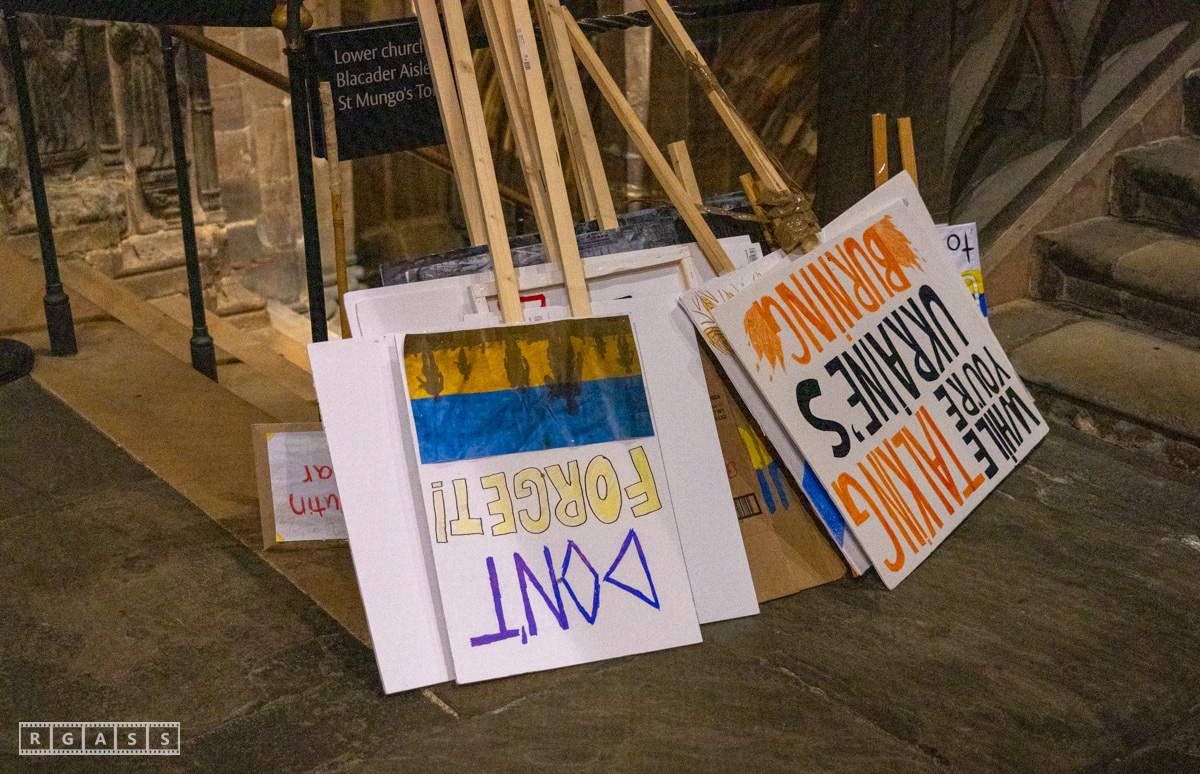 Lower church
Blacader Aisle
St Mungo's To
DON'T
FORGET!
WHILE
YOU'RE
TALKING
UKRAINE'S
BURNING
utin
ar
to
RGASS